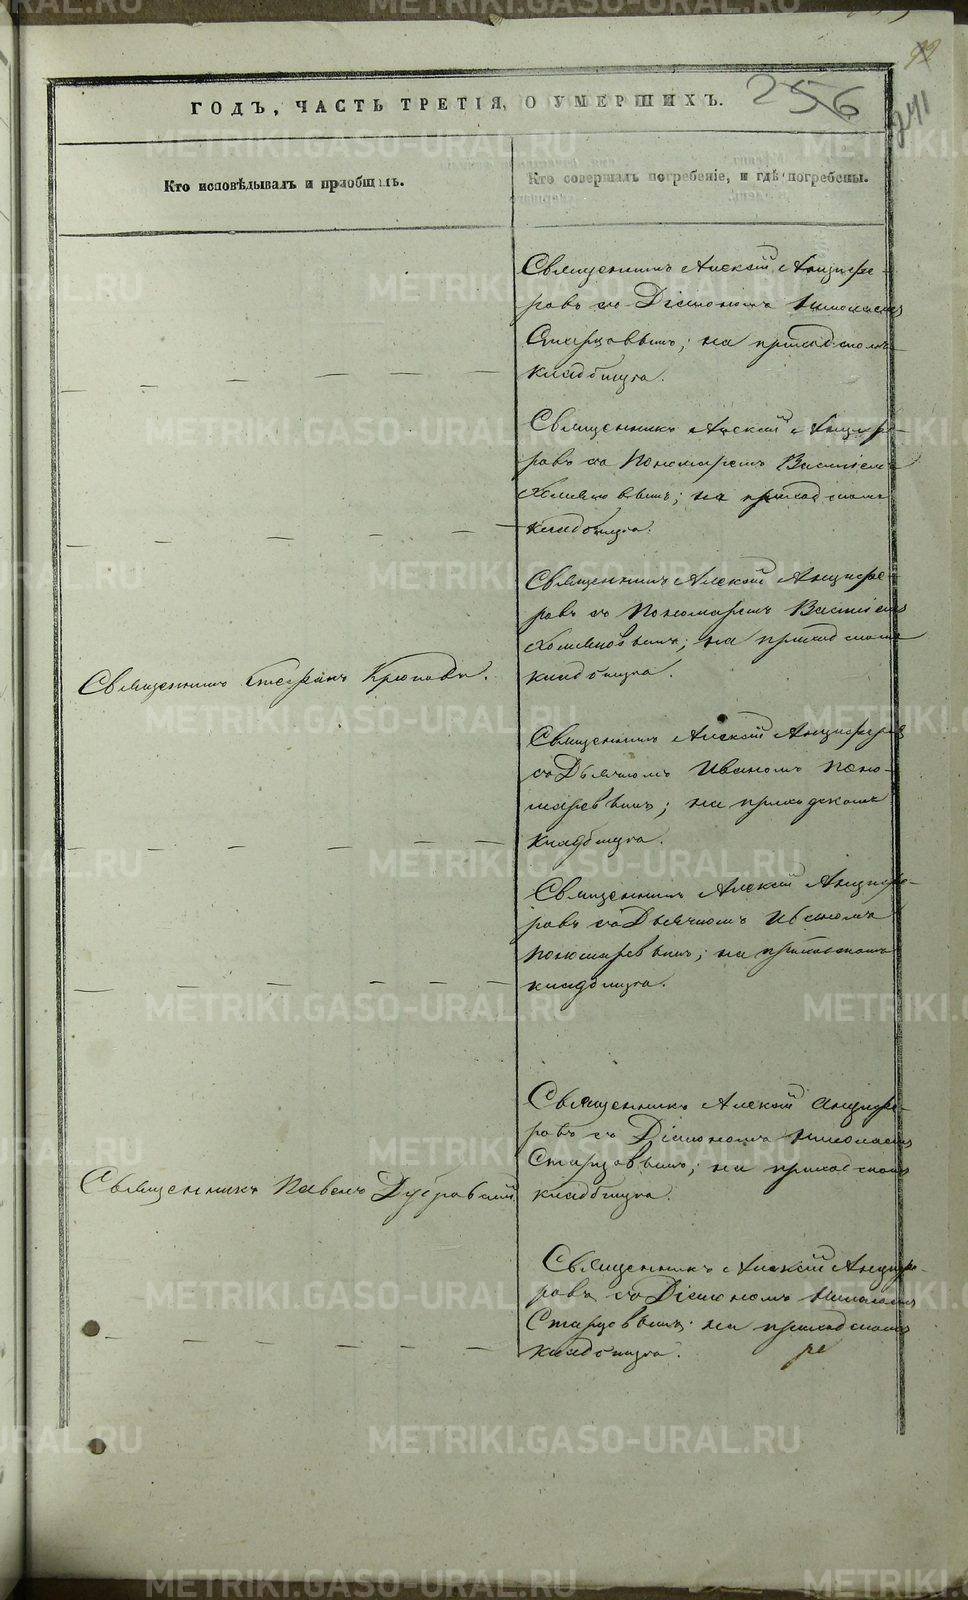 99
256
241
ГОДЪ, ЧАСТЬ ТРЕТІЯ, О УМЕРШИХЪ.
Кто исповѣдывалъ и пріобщалъ.
Кто совершалъ погребеніе, и гдѣ погребены.
Священникъ Алексій Анцифе-
ровъ съ Діакономъ Николаемъ
Старцовымъ; на приходскомъ
кладбищѣ.
Священникъ Алексій Анцифе-
ровъ съ Пономаремъ Василіемъ
Хомяковымъ; на приходскомъ
кладбищѣ.
Священникъ Алексій Анцифе-
ровъ съ Пономаремъ Василіемъ
Хомяковымъ; на приходскомъ
кладбищѣ.
Священникъ Стефанъ
Священникъ Алексій Анциферовъ
съ Дьячкомъ Иваномъ Поно-
маревымъ; на приходскомъ
кладбищѣ.
Священникъ Алексій Анцифе-
ровъ съ Дьячкомъ Иваномъ
Пономаревымъ; на приходскомъ
кладбищѣ.
Священникъ Алексій Анцифе-
ровъ съ Діакономъ Николаемъ
Старцовымъ; на приходскомъ
кладбищѣ.
Священникъ Павелъ Дубравскій
Священникъ Алексій Анцифе-
ровъ съ Діакономъ Николаемъ
Старцовымъ; на приходскомъ
кладбищѣ.
METRIKI.GASO-URAL.RU